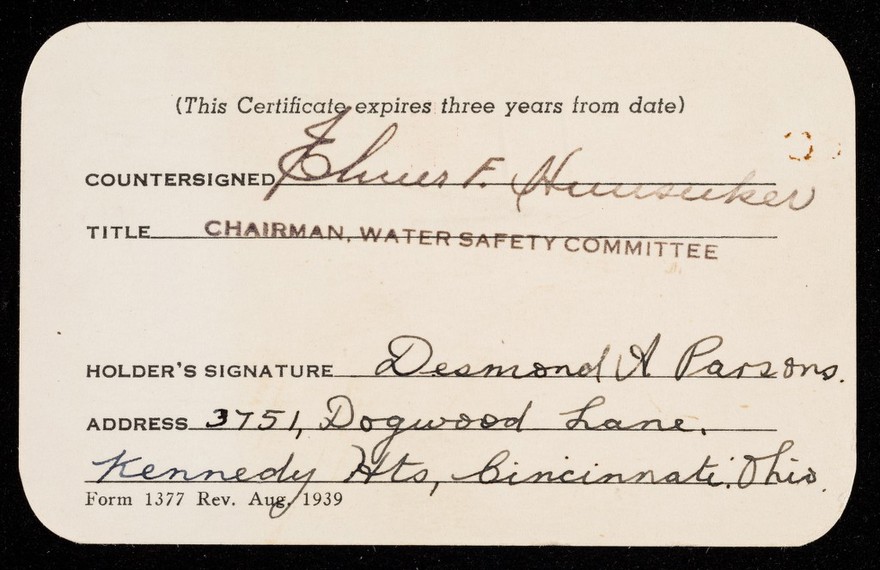 (This Certificate expires three years from date)
COUNTERSIGNED Elmer F. Hunsicker
TITLE CHAIRMAN, WATER SAFETY COMMITTEE
HOLDER'S SIGNATURE Desmond A Parsons.
ADDRESS 3751, Dogwood Lane.
Kennedy Hts, Cincinnati. Ohio.
Form 1377 Rev. Aug. 1939